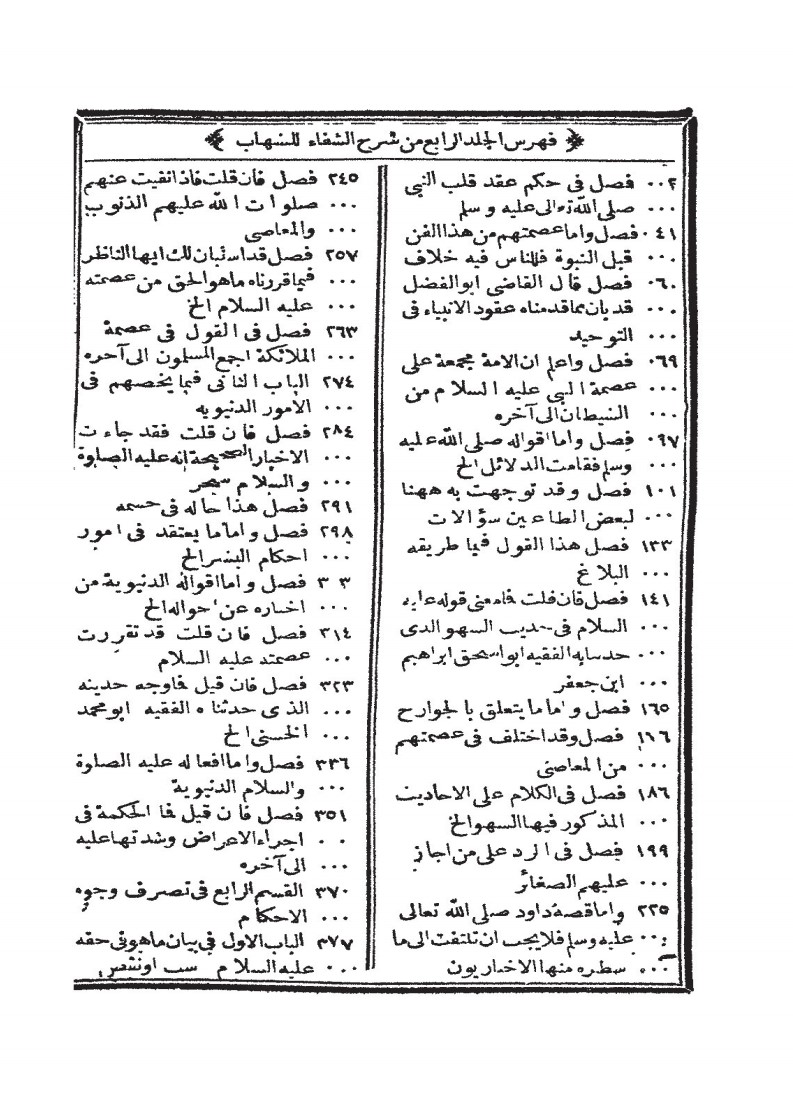 فهرس الجلد الرابع من شرح الشفاء للشهاب
٠٠٢ فصل فى حكم عقد قلب النبى
٠٠٠ صلى الله تعالى عليه وسلم
٠٤١ فصل واما عصمتهم من هذا الفن
٠٠٠ قبل النبوة فللناس فيه خلاف
٠٦٠ فصل قال القاضى ابوالفضل
٠٠٠ قدبان مما قدمناه عقود الانبياء فى
٠٠٠ التوحيد
٠٦٩ فصل واعلم ان الامة مجمعة على
٠٠٠ عصمة النبى عليه السلام من
٠٠٠ الشيطان الى آخره
٠٩٧ فصل واما اقواله صلى الله عليه
٠٠٠ وسلم فقامت الدلائل الخ
١٠١ فصل وقد توجهت به ههنا
٠٠٠ لبعض الطاعنين سؤالات
١٣٣ فصل هذا القول فيما طريقه
٠٠٠ البلاغ
١٤١ فصل فان قلت فامعنى قوله عليه
٠٠٠ السلام فى حديث السهو الذى
٠٠٠ حدثنابه الفقيه ابواسحق ابراهيم
٠٠٠ ابن جعفر
١٦٥ فصل واما ما يتعلق بالجوارح
١٧٦ فصل وقد اختلف فى عصمتهم
٠٠٠ من المعاصى
١٨٦ فصل فى الكلام على الاحاديث
٠٠٠ المذكور فيها السهو الخ
١٩٩ فصل فى الرد على من اجاز
٠٠٠ عليهم الصغائر
٢٢٥ واما قصة داود صلى الله تعالى
٠٠٠ عليه وسلم فلا يجب ان تلتفت الى ما
٠٠٠ سطره منها الاخباريون
٢٤٥ فصل فان قلت فاذا نفيت عنهم
٠٠٠ صلوات الله عليهم الذنوب
٠٠٠ والمعاصى
٢٥٧ فصل قد استبان لك ايها الناظر
٠٠٠ فيما قررناه ماهو الحق من عصمته
٠٠٠ عليه السلام الخ
٢٦٣ فصل فى القول فى عصمة
٠٠٠ الملائكة اجمع المسلمون الى آخره
٢٧٤ الباب الثانى فيما يخصهم فى
٠٠٠ الامور الدنيويه
٢٨٤ فصل فان قلت فقد جاءت
٠٠٠ الاخبار الصحيحة انه عليه الصلوة
٠٠٠ والسلام سحر
٢٩١ فصل هذا حاله فى جسمه
٢٩٨ فصل واما ما يعتقد فى امور
٠٠٠ احكام البشر الخ
٣٠٣ فصل واما اقواله الدنيوية من
٠٠٠ اخباره عن احواله الخ
٣١٤ فصل فان قلت قد تقررت
٠٠٠ عصمته عليه السلام
٣٢٣ فصل فان قيل فاوجه حديثه
٠٠٠ الذى حدثناه الفقيه ابومحمد
٠٠٠ الخشنى الخ
٣٣٦ فصل واما افعاله عليه الصلوة
٠٠٠ والسلام الدنيوية
٣٥١ فصل فان قيل فا الحكمة فى
٠٠ اجراء الاعراض وشدتها عليه
٠٠٠ الى آخره
٣٧٠ القسم الرابع فى تصرف وجوه
٠٠٠ الاحكام
٣٧٧ الباب الاول فى بيان ماهو فى حقه
٠٠٠ عليه السلام سب اونقص